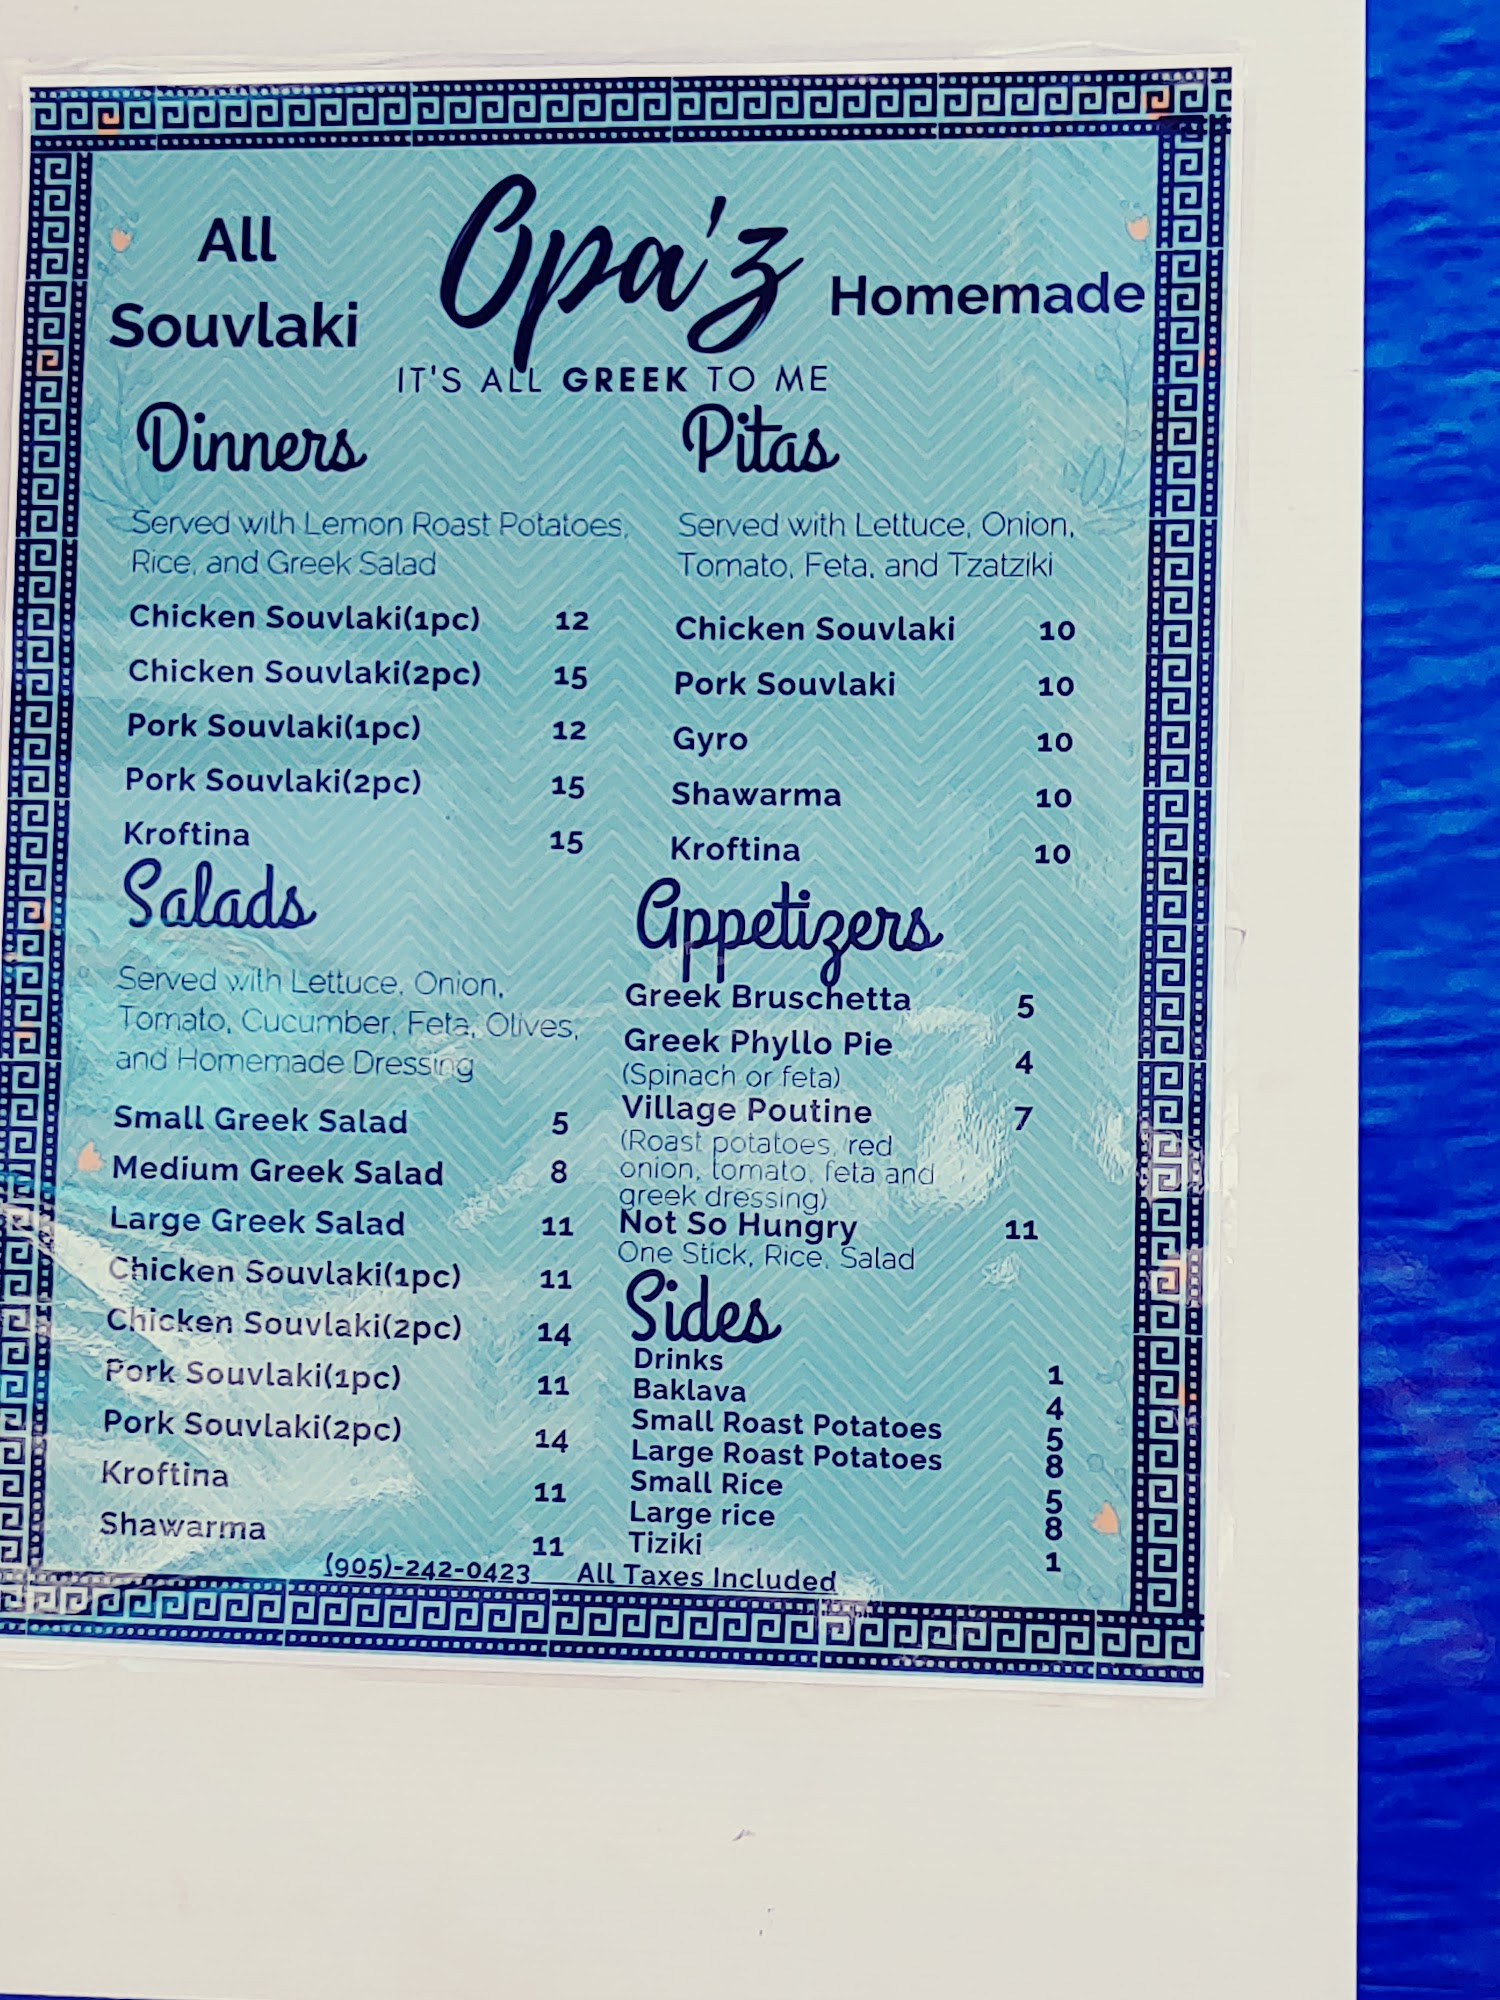 All
Souvlaki
Opa'z
Homemade
IT'S ALL GREEK TO ME
Dinners
Served with Lemon Roast Potatoes,
Rice, and Greek Salad
Chicken Souvlaki(1pc) 12
Chicken Souvlaki(2pc) 15
Pork Souvlaki(1pc) 12
Pork Souvlaki(2pc) 15
Kroftina 15
Pitas
Served with Lettuce, Onion,
Tomato, Feta, and Tzatziki
Chicken Souvlaki 10
Pork Souvlaki 10
Gyro 10
Shawarma 10
Kroftina 10
Salads
Served with Lettuce, Onion,
Tomato, Cucumber, Feta, Olives,
and Homemade Dressing
Small Greek Salad 5
Medium Greek Salad 8
Large Greek Salad 11
Chicken Souvlaki(1pc) 11
Chicken Souvlaki(2pc) 14
Pork Souvlaki(1pc) 11
Pork Souvlaki(2pc) 14
Kroftina 11
Shawarma 11
Appetizers
Greek Bruschetta 5
Greek Phyllo Pie 4
(Spinach or feta)
Village Poutine 7
(Roast potatoes, red
onion, tomato, feta and
greek dressing)
Not So Hungry 11
One Stick, Rice, Salad
Sides
Drinks 1
Baklava 4
Small Roast Potatoes 5
Large Roast Potatoes 8
Small Rice 5
Large rice 8
Tiziki 1
(905)-242-0423 All Taxes Included